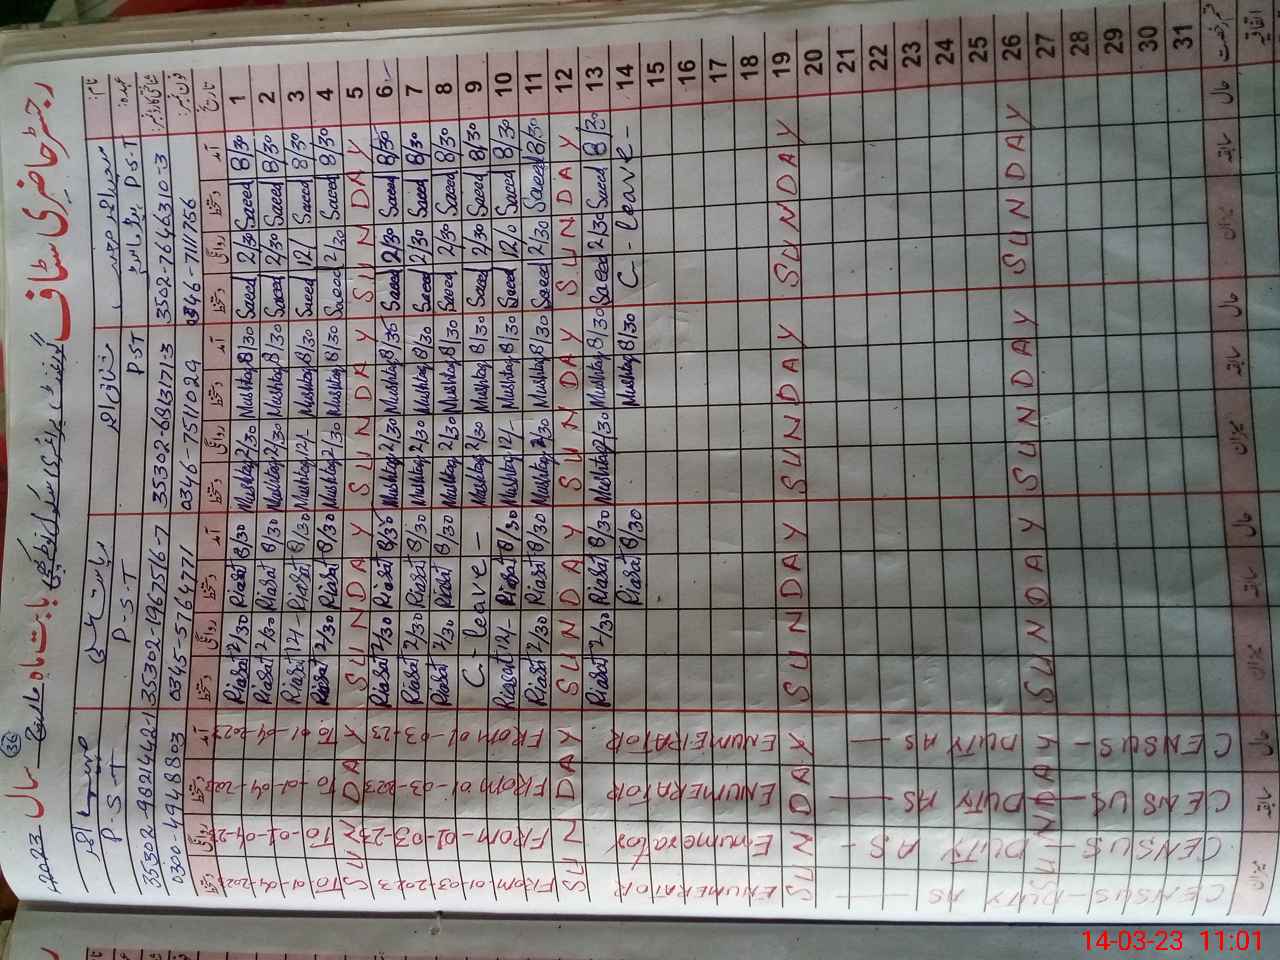 رجسٹر حاضری سٹاف
بابت ماہ مارچ سال 2023
36
P.S.T
35302-9821442-1
0300-4948803
P-S-T
35302-1967516-7
0345-5764771
P.ST
35302-6913171-3
0346-7511029
P.S.T
3502-7646310-3
0346-7111756
1 Saeed 8/30 Saeed 2/30 Mushtaq 8/30 Mushtaq 2/30 Riasat 8/30 Riasat 2/30
2 Saeed 8/30 Saeed 2/30 Mushtaq 8/30 Mushtaq 2/30 Riasat 8/30 Riasat 2/30
3 Saeed 8/30 Saeed 12/ Mushtaq 8/30 Mushtaq 12/- Riasat 8/30 Riasat 12/-
4 Saeed 8/30 Saeed 2/30 Mushtaq 8/30 Mushtaq 2/30 Riasat 8/30 Riasat 2/30
5 SUNDAY SUNDAY SUNDAY SUNDAY
6 Saeed 8/30 Saeed 2/30 Mushtaq 8/30 Mushtaq 2/30 Riasat 8/30 Riasat 2/30
7 Saeed 8/30 Saeed 2/30 Mushtaq 8/30 Mushtaq 2/30 Riasat 8/30 Riasat 2/30
8 Saeed 8/30 Saeed 2/30 Mushtaq 8/30 Mushtaq 2/30 Riasat 8/30 Riasat 2/30
9 Saeed 8/30 Saeed 2/30 Mushtaq 8/30 Mushtaq 2/30 C - leave -
10 Saeed 8/30 Saeed 12/0 Mushtaq 8/30 Mushtaq 12/- Riasat 8/30 Riasat 12/-
11 Saeed 8/30 Saeed 2/30 Mushtaq 8/30 Mushtaq 2/30 Riasat 8/30 Riasat 2/30
12 SUNDAY SUNDAY SUNDAY SUNDAY
13 Saeed 8/30 Saeed 2/30 Mushtaq 8/30 Mushtaq 2/30 Riasat 8/30 Riasat 2/30
14 C - leave - Mushtaq 8/30 Riasat 8/30
15
16
17
18
19 SUNDAY SUNDAY SUNDAY SUNDAY
20
21
22
23
24
25
26 SUNDAY SUNDAY SUNDAY SUNDAY
27
28
29
30
31
CENSUS - DUTY AS - ENUMERATOR FROM 01-03-23 To 01-04-2023
CENSUS - DUTY AS - ENUMERATOR FROM 01-03-2023 To-01-04-2023
CENSUS - DUTY AS - Enumerator FROM-01-03-23 To-01-04-23
CENSUS-DUTY AS ENUMERATOR FROM 01-03-2023 To 01-04-2023
14-03-23 11:01